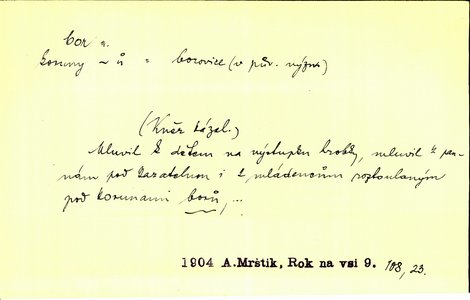 bor m.
koruny ~ ů = borovice (v pův. význ.)
(Kněz kázal.)
Mluvil k dětem na výstupku hrobky, mluvil k pan-
nám pod kazatelnou i k mládencům roztoulaným
pod korunami borů, ...
1904 A.Mrštík, Rok na vsi 9. 108, 23.